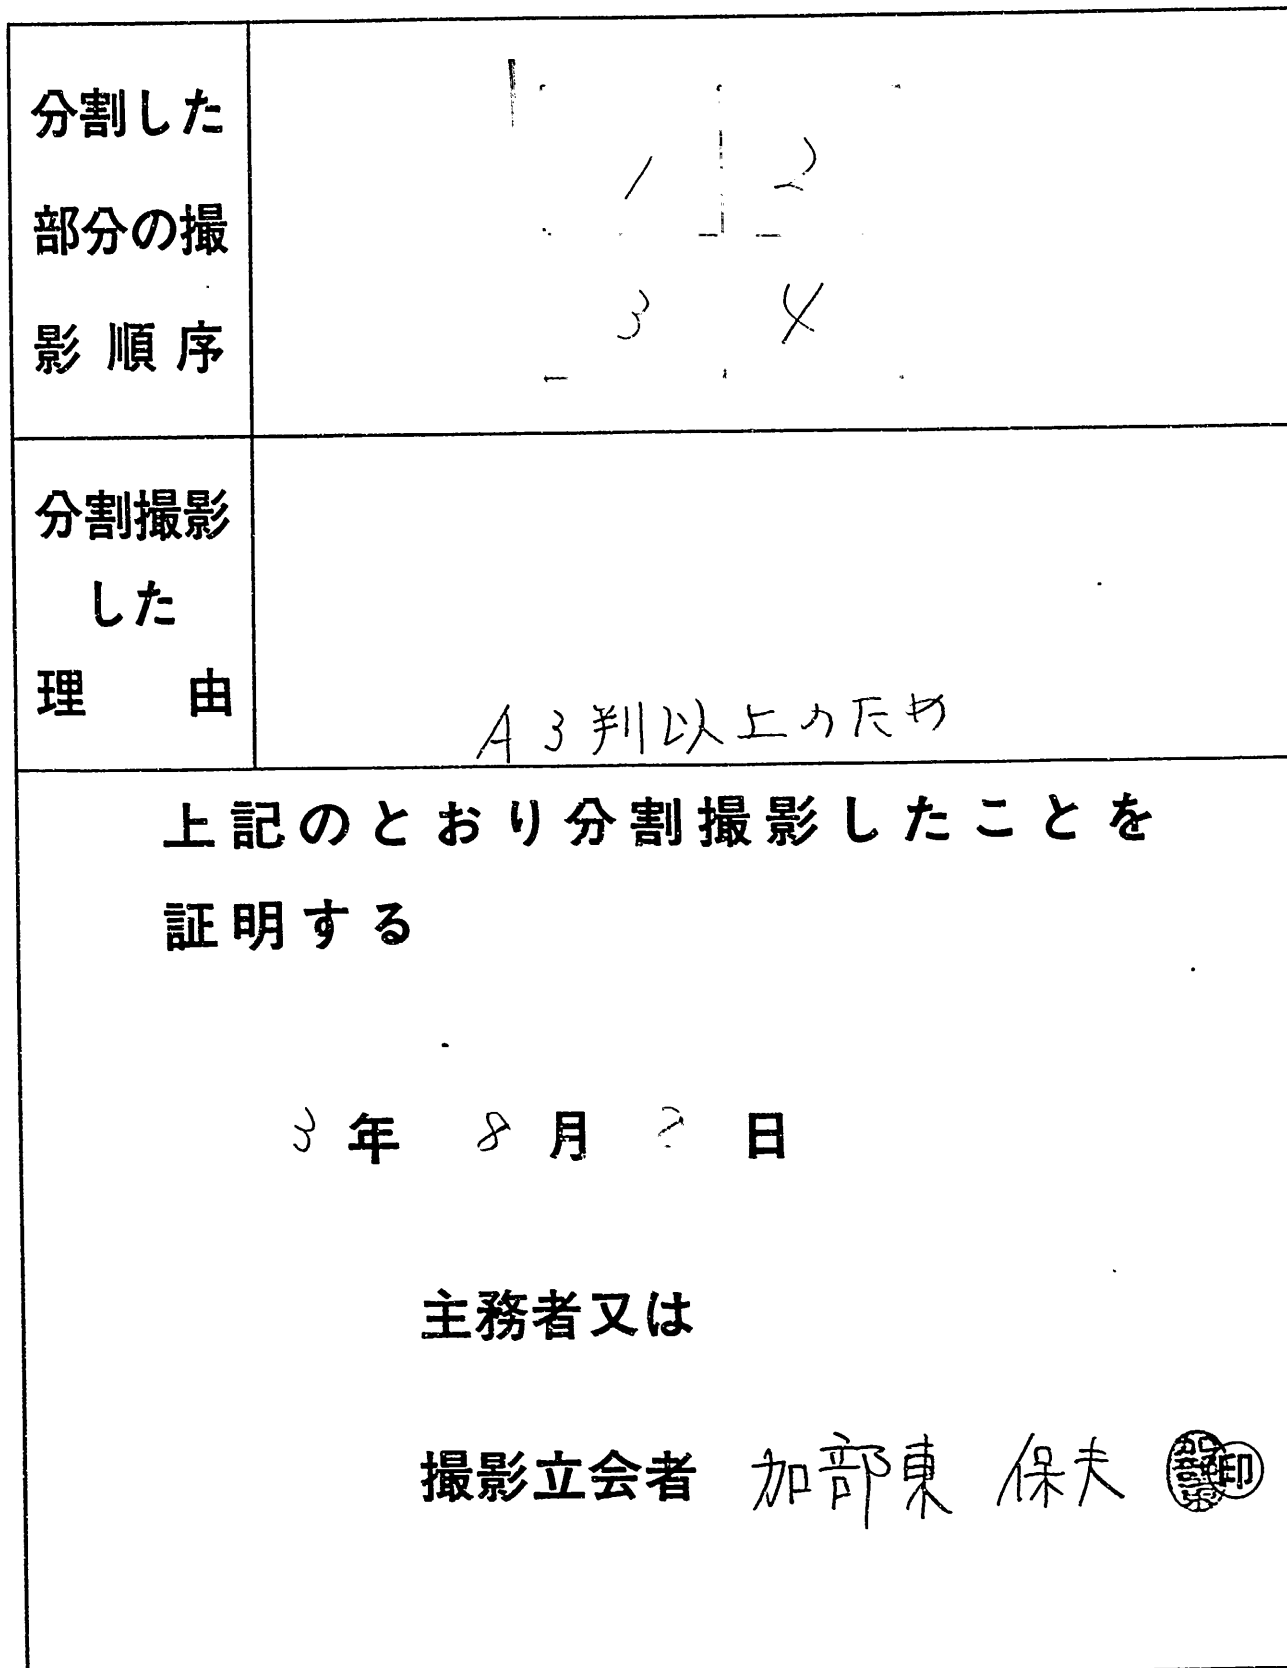 分割した
部分の撮
影順序
1 2
3 4
分割撮影
した
理由
A3判以上のため
上記のとおり分割撮影したことを
証明する
3年 8月 日
主務者又は
撮影立会者 加部東 保夫 印